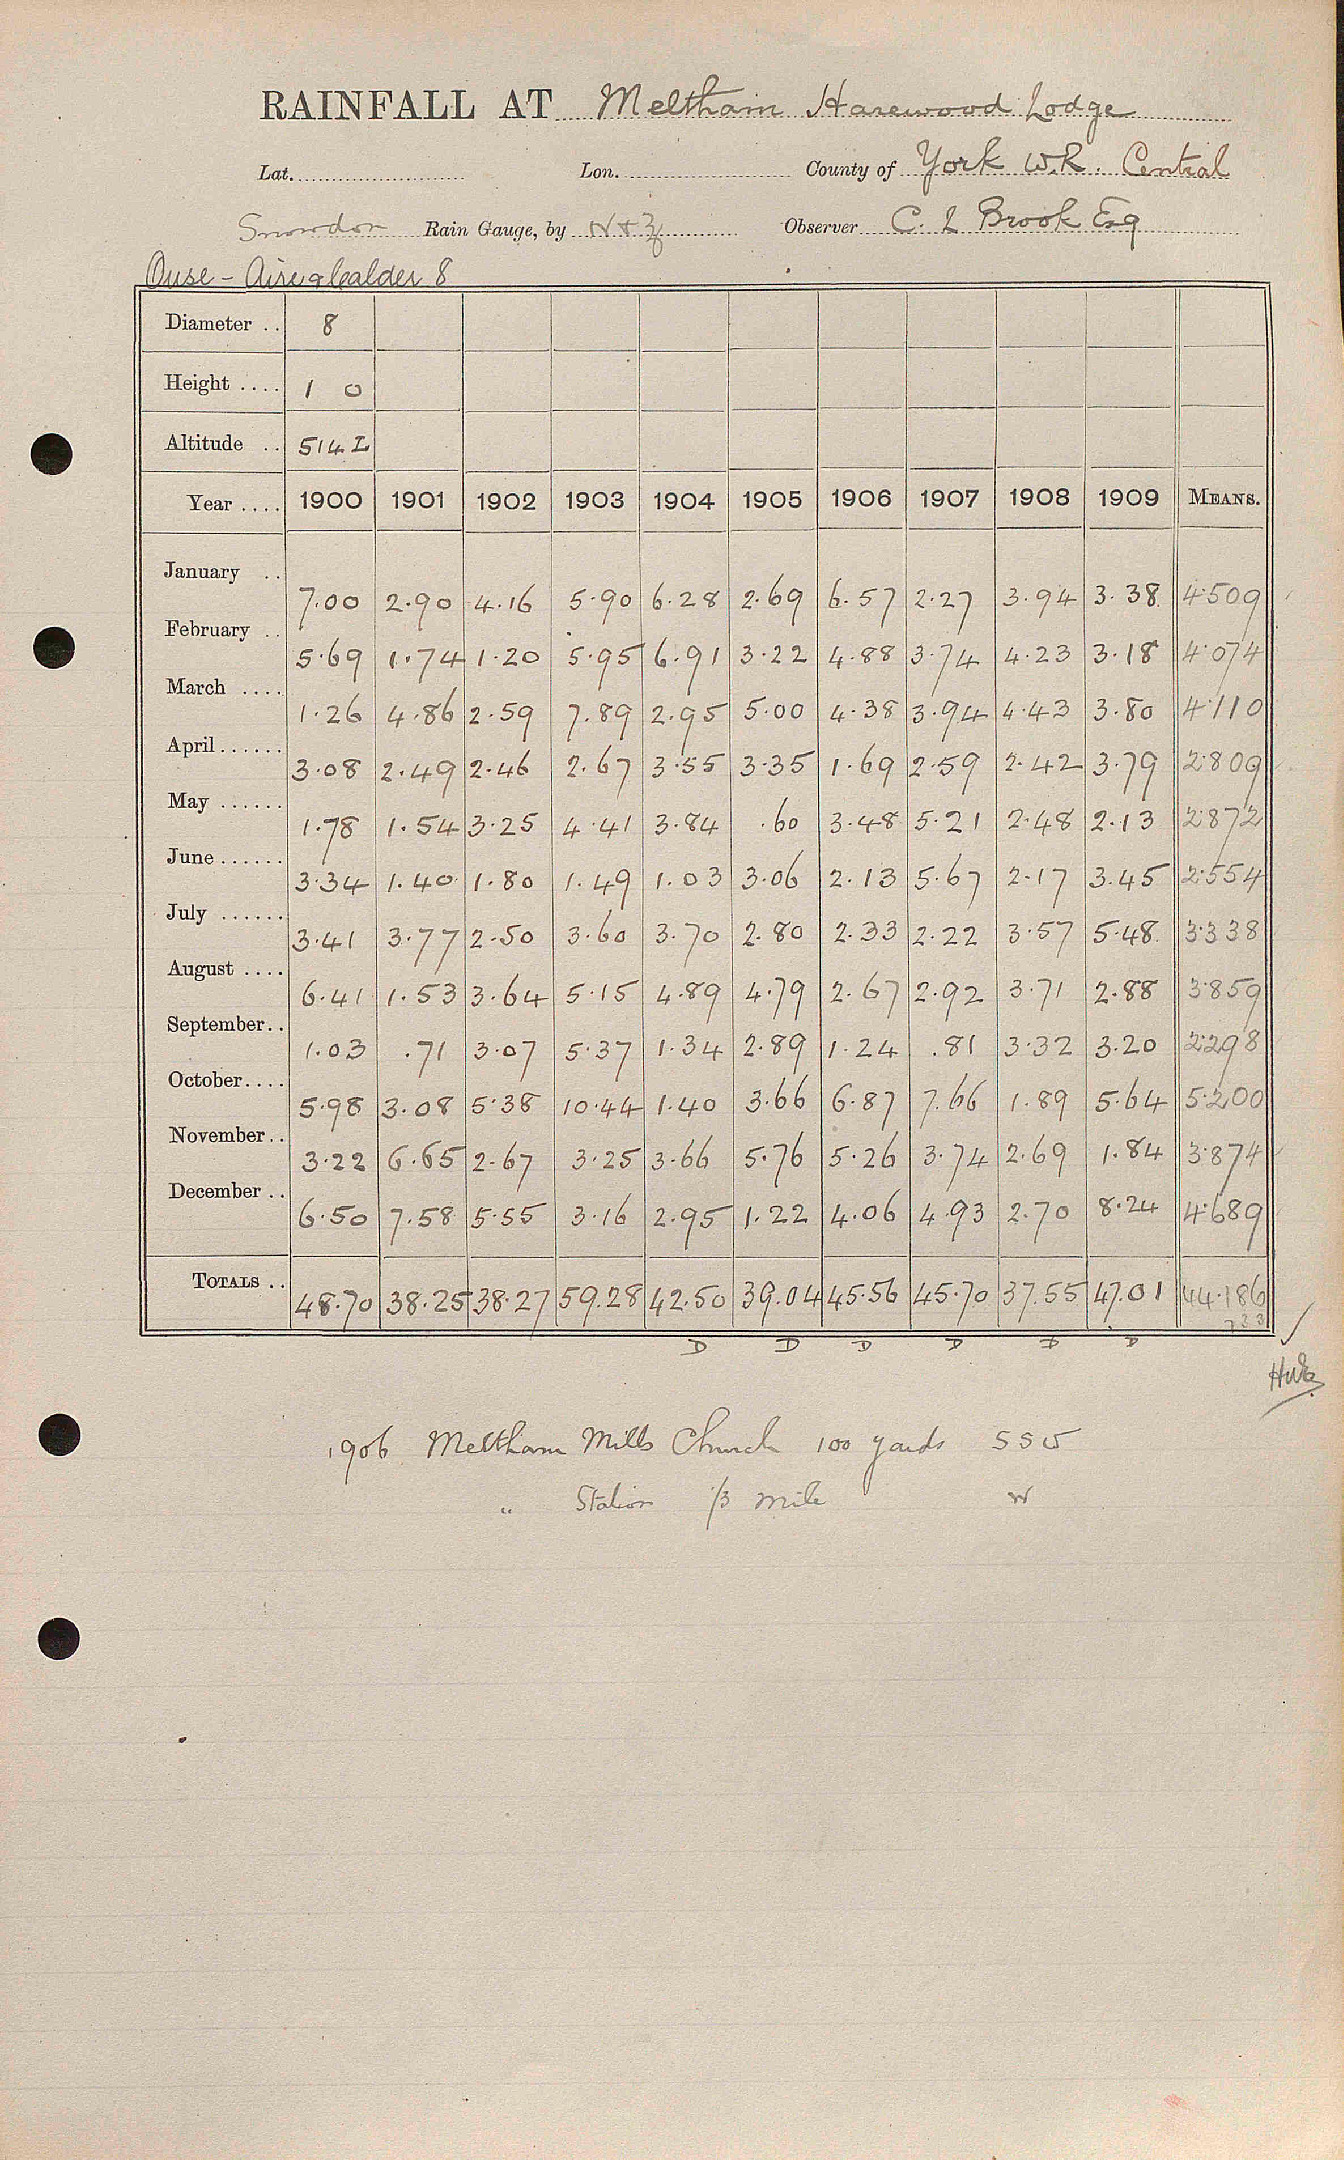 RAINFALL AT Meltham Harewood Lodge
Lat. Lon. County of York W.R. Central
Snowdon Rain Gauge, by N+Z Observer C. L Brook Esq
Ouse - Aire & Calder 8
Diameter .. 8
Height .... 1 0
Altitude .. 514 L
Year .... 1900 1901 1902 1903 1904 1905 1906 1907 1908 1909 MEANS.
January .. 7.00 2.90 4.16 5.90 6.28 2.69 6.57 2.27 3.94 3.38 4.509
February .. 5.69 1.74 1.20 5.95 6.91 3.22 4.88 3.74 4.23 3.18 4.074
March .... 1.26 4.86 2.59 7.89 2.95 5.00 4.38 3.94 4.43 3.80 4.110
April ...... 3.08 2.49 2.46 2.67 3.55 3.35 1.69 2.59 2.42 3.79 2.809
May ...... 1.78 1.54 3.25 4.41 3.84 .60 3.48 5.21 2.48 2.13 2.872
June ...... 3.34 1.40 1.80 1.49 1.03 3.06 2.13 5.67 2.17 3.45 2.554
July ...... 3.41 3.77 2.50 3.60 3.70 2.80 2.33 2.22 3.57 5.48 3.338
August .... 6.41 1.53 3.64 5.15 4.89 4.79 2.67 2.92 3.71 2.88 3.859
September.. 1.03 .71 3.07 5.37 1.34 2.89 1.24 .81 3.32 3.20 2.298
October.... 5.98 3.08 5.38 10.44 1.40 3.66 6.87 7.66 1.89 5.64 5.200
November.. 3.22 6.65 2.67 3.25 3.66 5.76 5.26 3.74 2.69 1.84 3.874
December .. 6.50 7.58 5.55 3.16 2.95 1.22 4.06 4.93 2.70 8.24 4.689
TOTALS .. 48.70 38.25 38.27 59.28 42.50 39.04 45.56 45.70 37.55 47.01 44.186
D D D D D D
1906 Meltham Mills Church 100 yards S S W
" Station 1/3 mile W